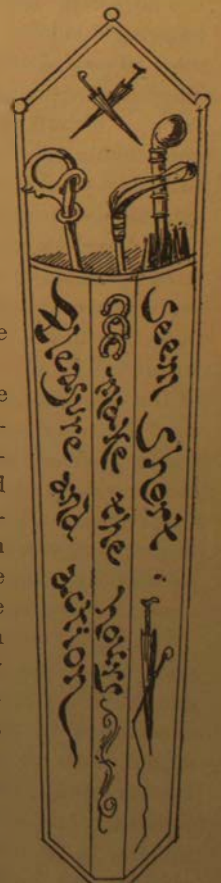 Pleasure and action
make the hours
Seem Short :